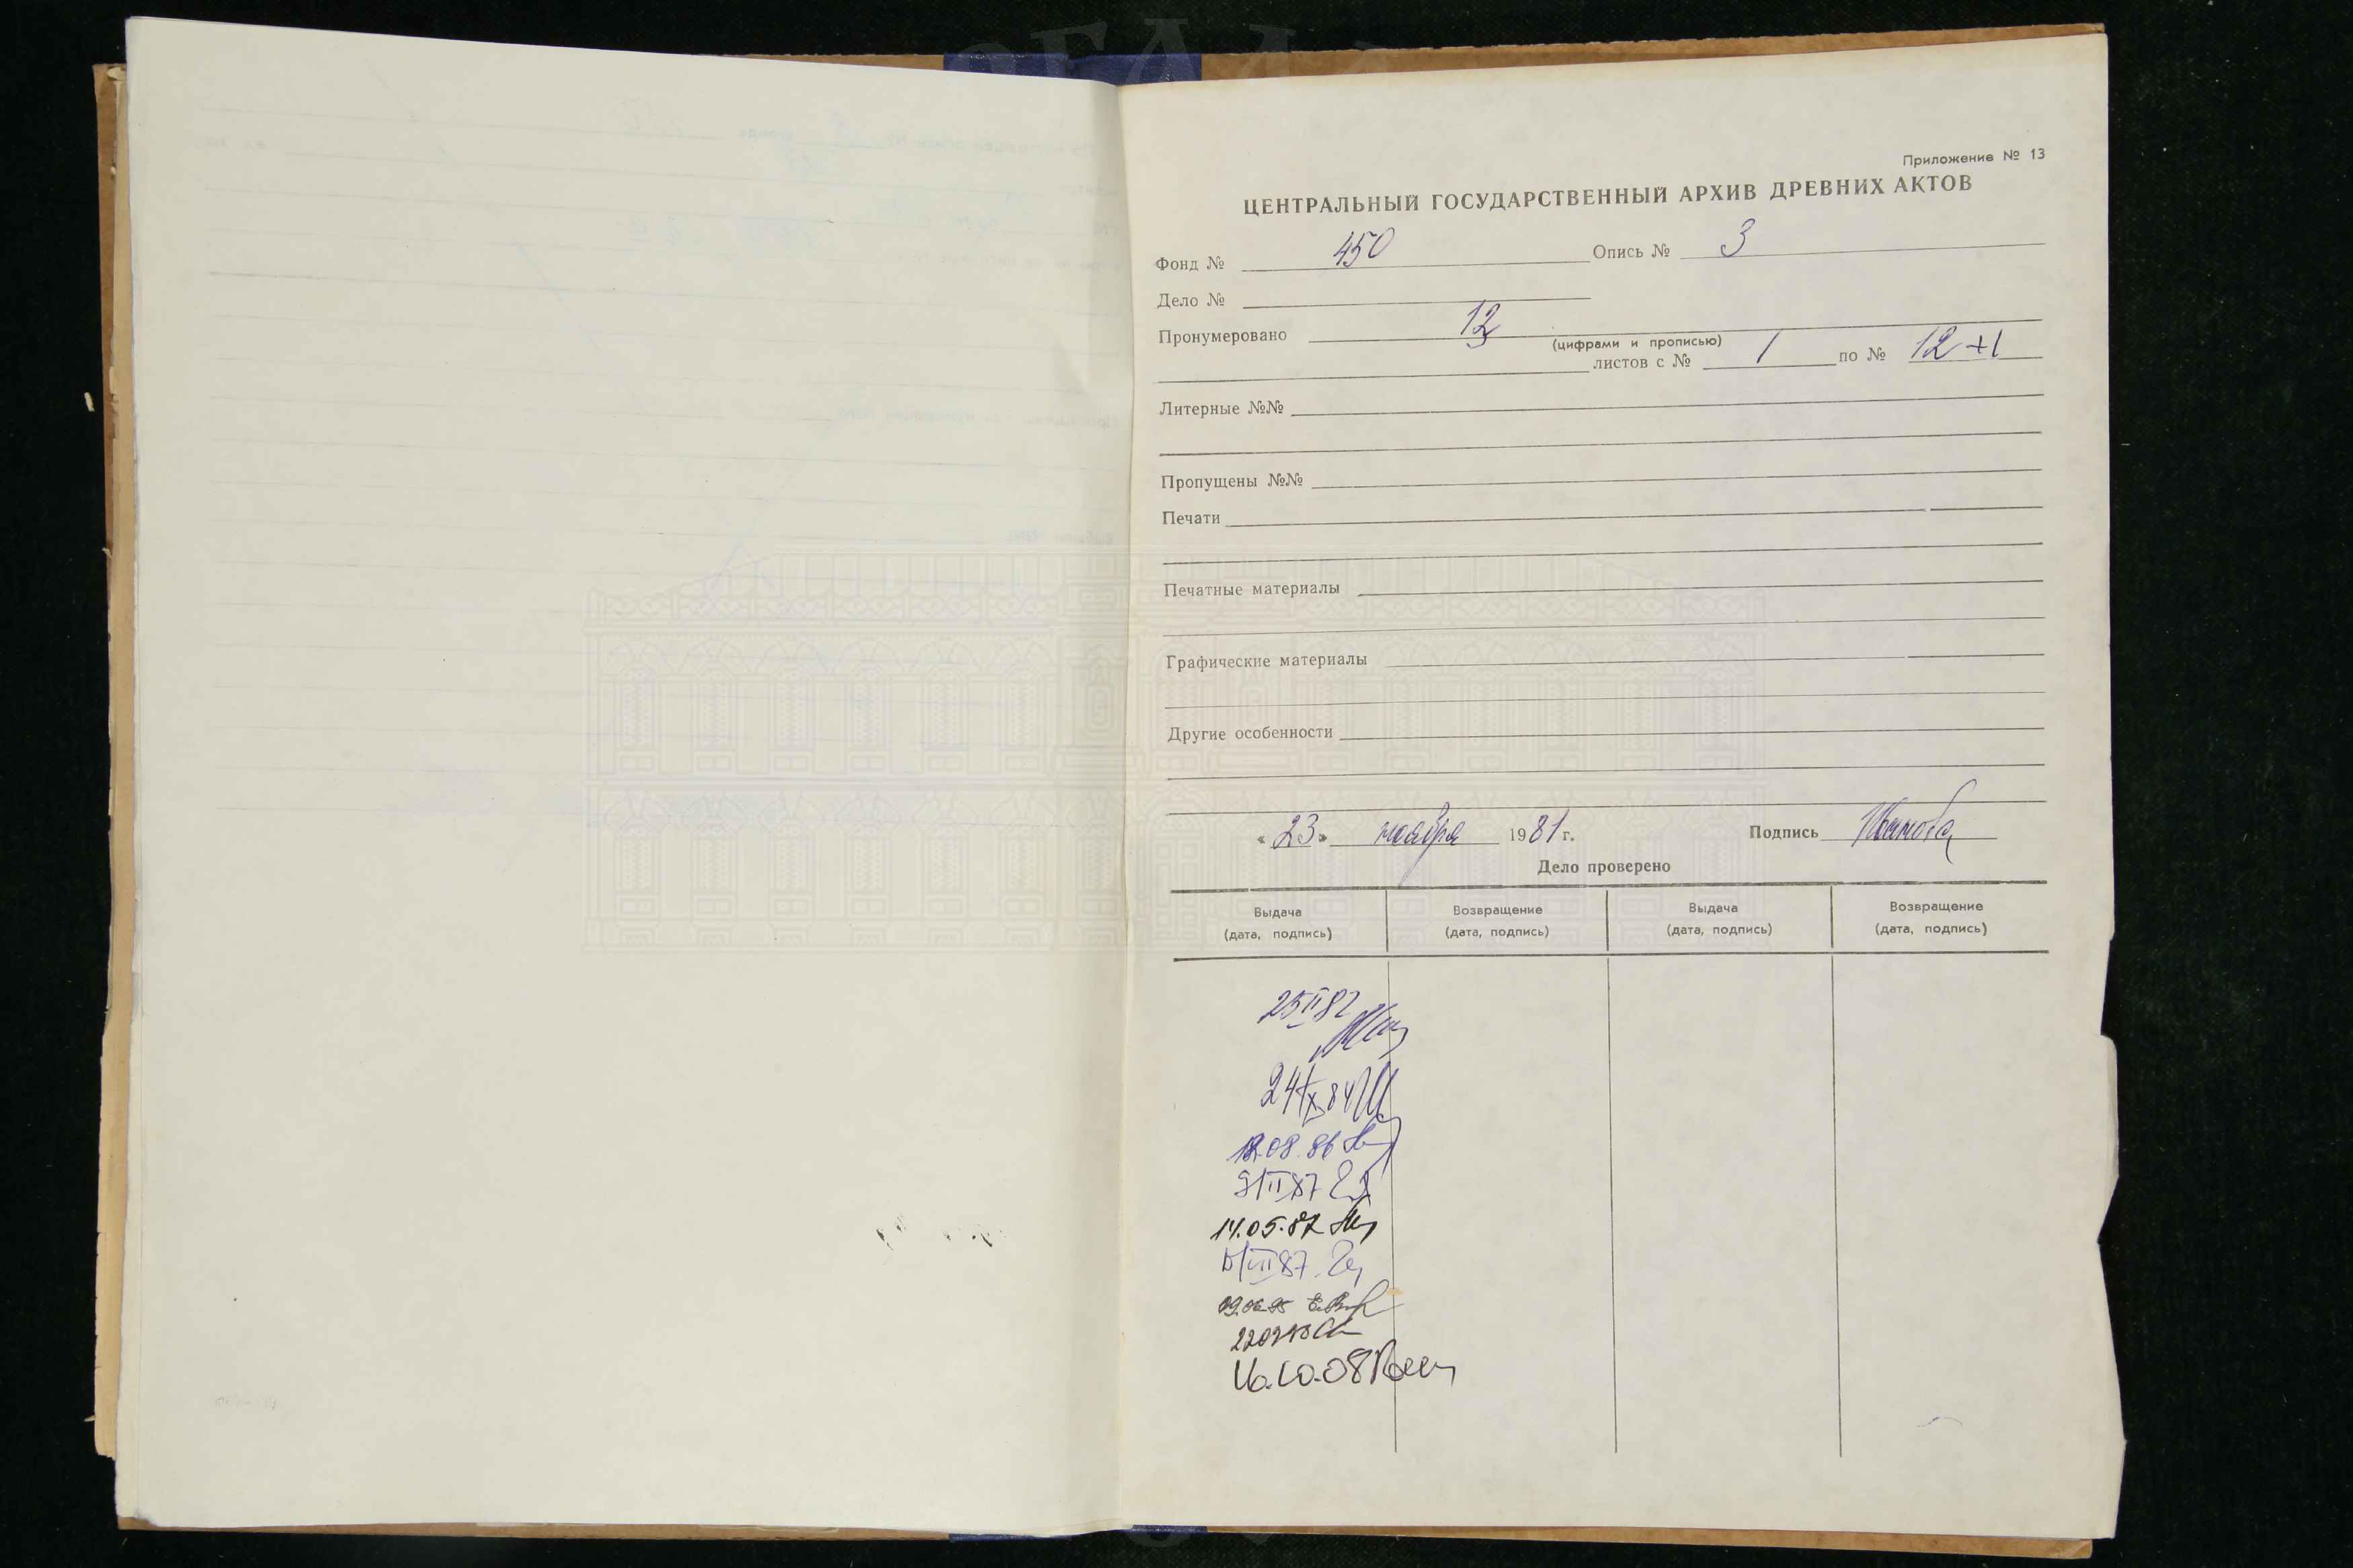 Приложение № 13
ЦЕНТРАЛЬНЫЙ ГОСУДАРСТВЕННЫЙ АРХИВ ДРЕВНИХ АКТОВ
Фонд № 450 Опись № 3
Дело №
Пронумеровано 12
(цифрами и прописью)
листов с № 1 по № 12+1
Литерные №№
Пропущены №№
Печати
Печатные материалы
Графические материалы
Другие особенности
«23» ноября 1981 г. Подпись
Дело проверено
Выдача Возвращение Выдача Возвращение
(дата, подпись) (дата, подпись) (дата, подпись) (дата, подпись)
25 II 82
24/IX 84
08.86
II 87
14.05.87
87
16.10.08